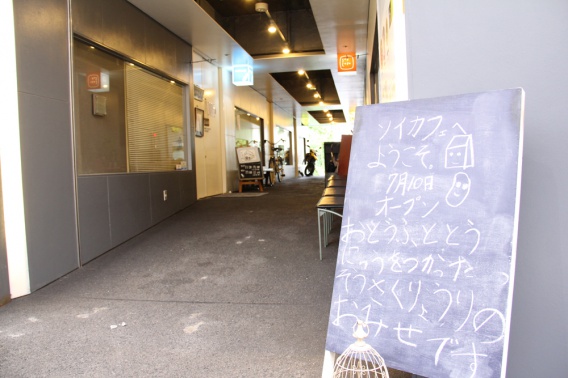 ソイカフェへ
ようこそ。
7月10日
オープン
おとうふ、ととう
にゅうをつかった
そうさくりょうりの
おみせです